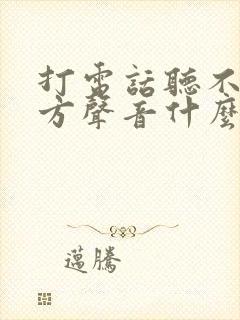 打電話聽不
方聲音什麼
邁騰